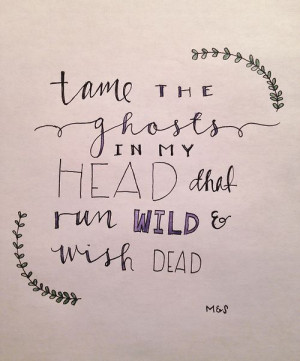 tame THE
ghosts
IN MY
HEAD that
run WILD &
wish DEAD
M&S